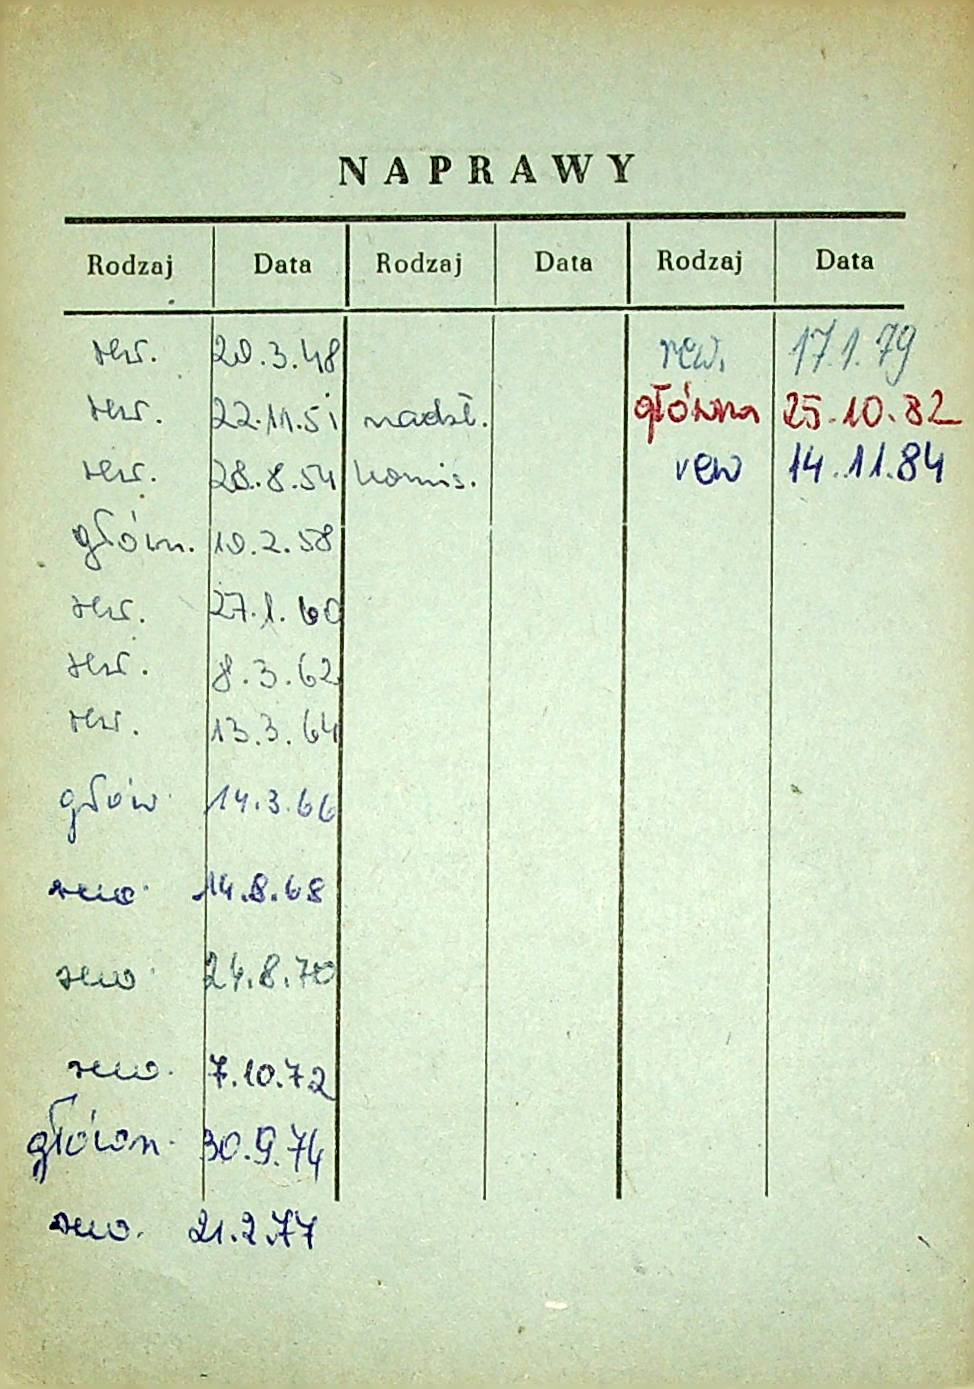 NAPRAWY
Rodzaj Data Rodzaj Data Rodzaj Data
rew. 20.3.48 rew. 17.1.79
rew. 22.11.51 nadzt. główna 25.10.82
rew. 28.8.54 komis. rew 14.11.84
główn. 10.2.58
rew. 27.1.60
rew. 8.3.62
rew. 13.3.64
głów. 14.3.66
rew. 14.8.68
rew. 24.8.70
rew. 7.10.72
główn. 30.9.74
rew. 21.2.77